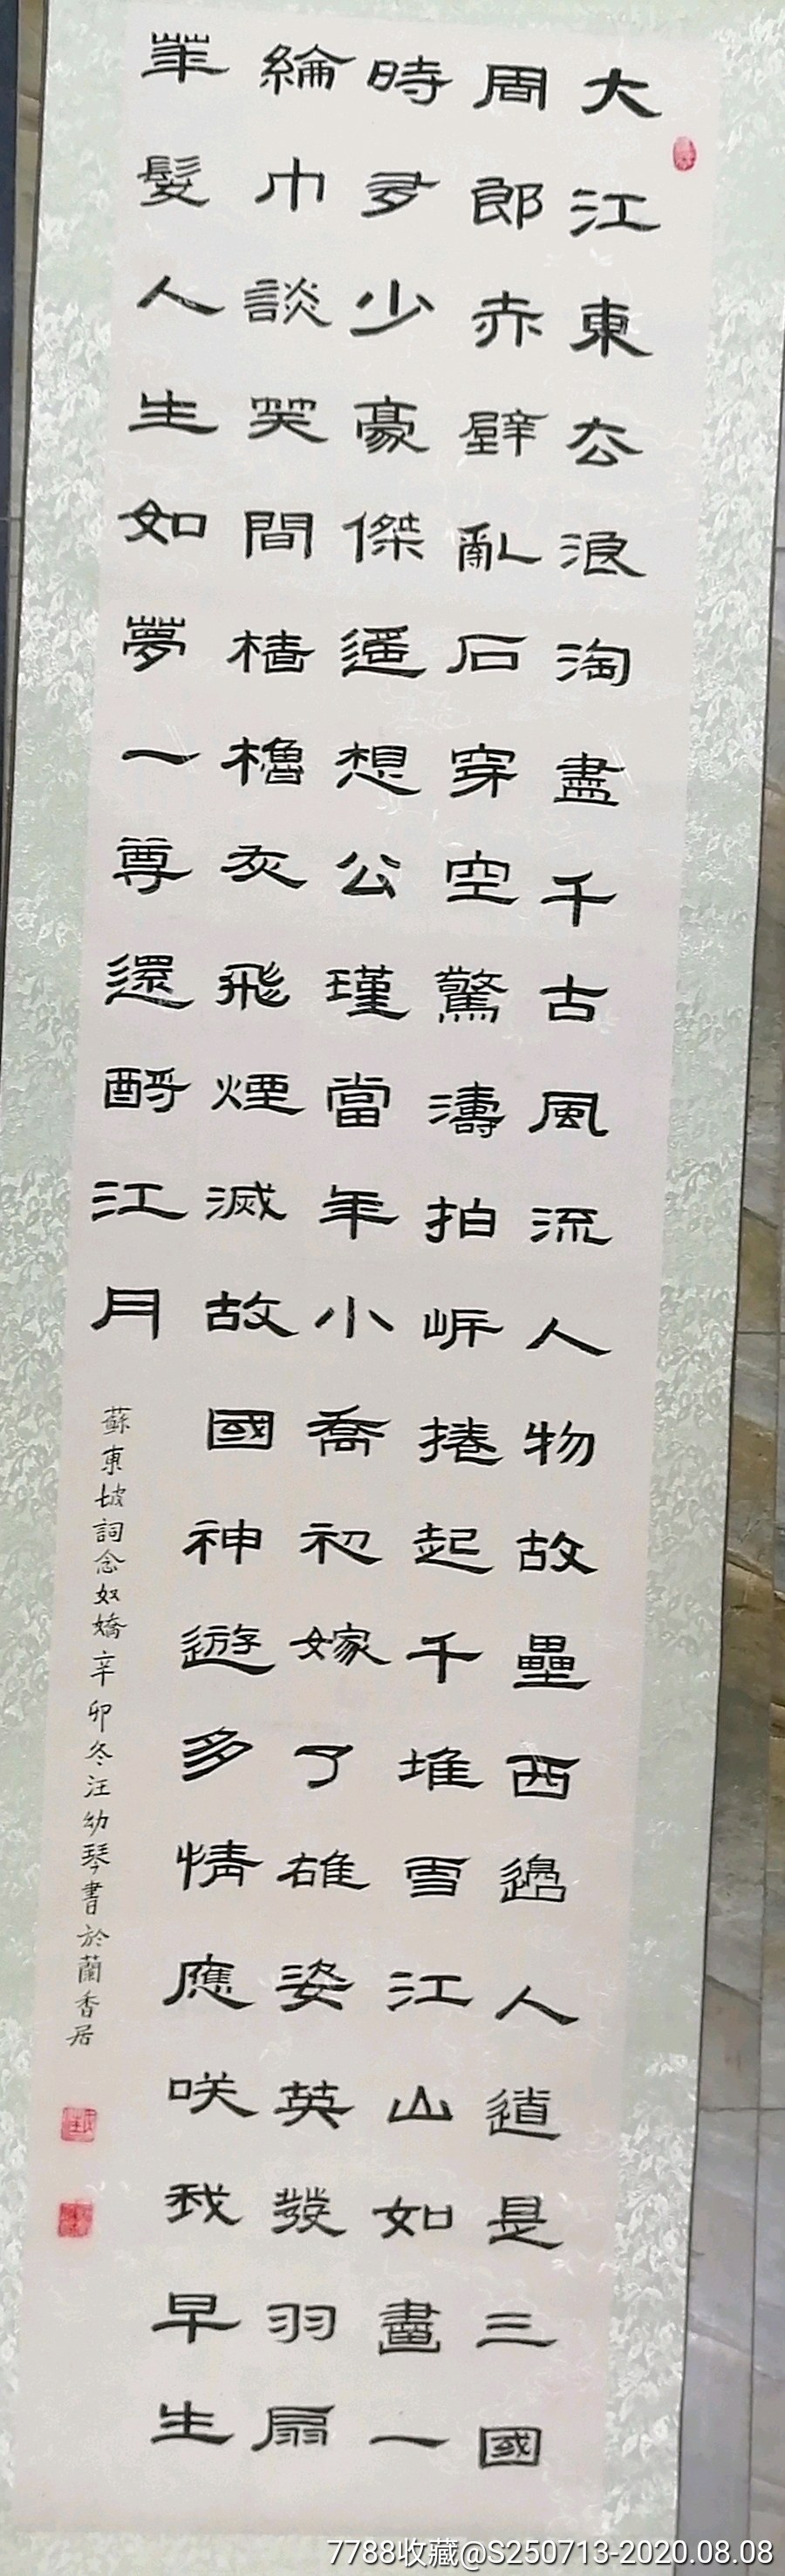 大江東去浪淘盡千古風流人物故壘西邊人道是三國
周郎赤壁亂石穿空驚濤拍岸捲起千堆雪江山如畫一
時多少豪傑遥想公瑾當年小喬初嫁了雄姿英發羽扇
綸巾談笑間檣櫓灰飛煙滅故國神遊多情應咲我早生
華髮人生如夢一尊還酹江月
蘇東坡詞念奴嬌辛卯冬汪幼琴書於蘭香居
7788收藏@S250713-2020.08.08